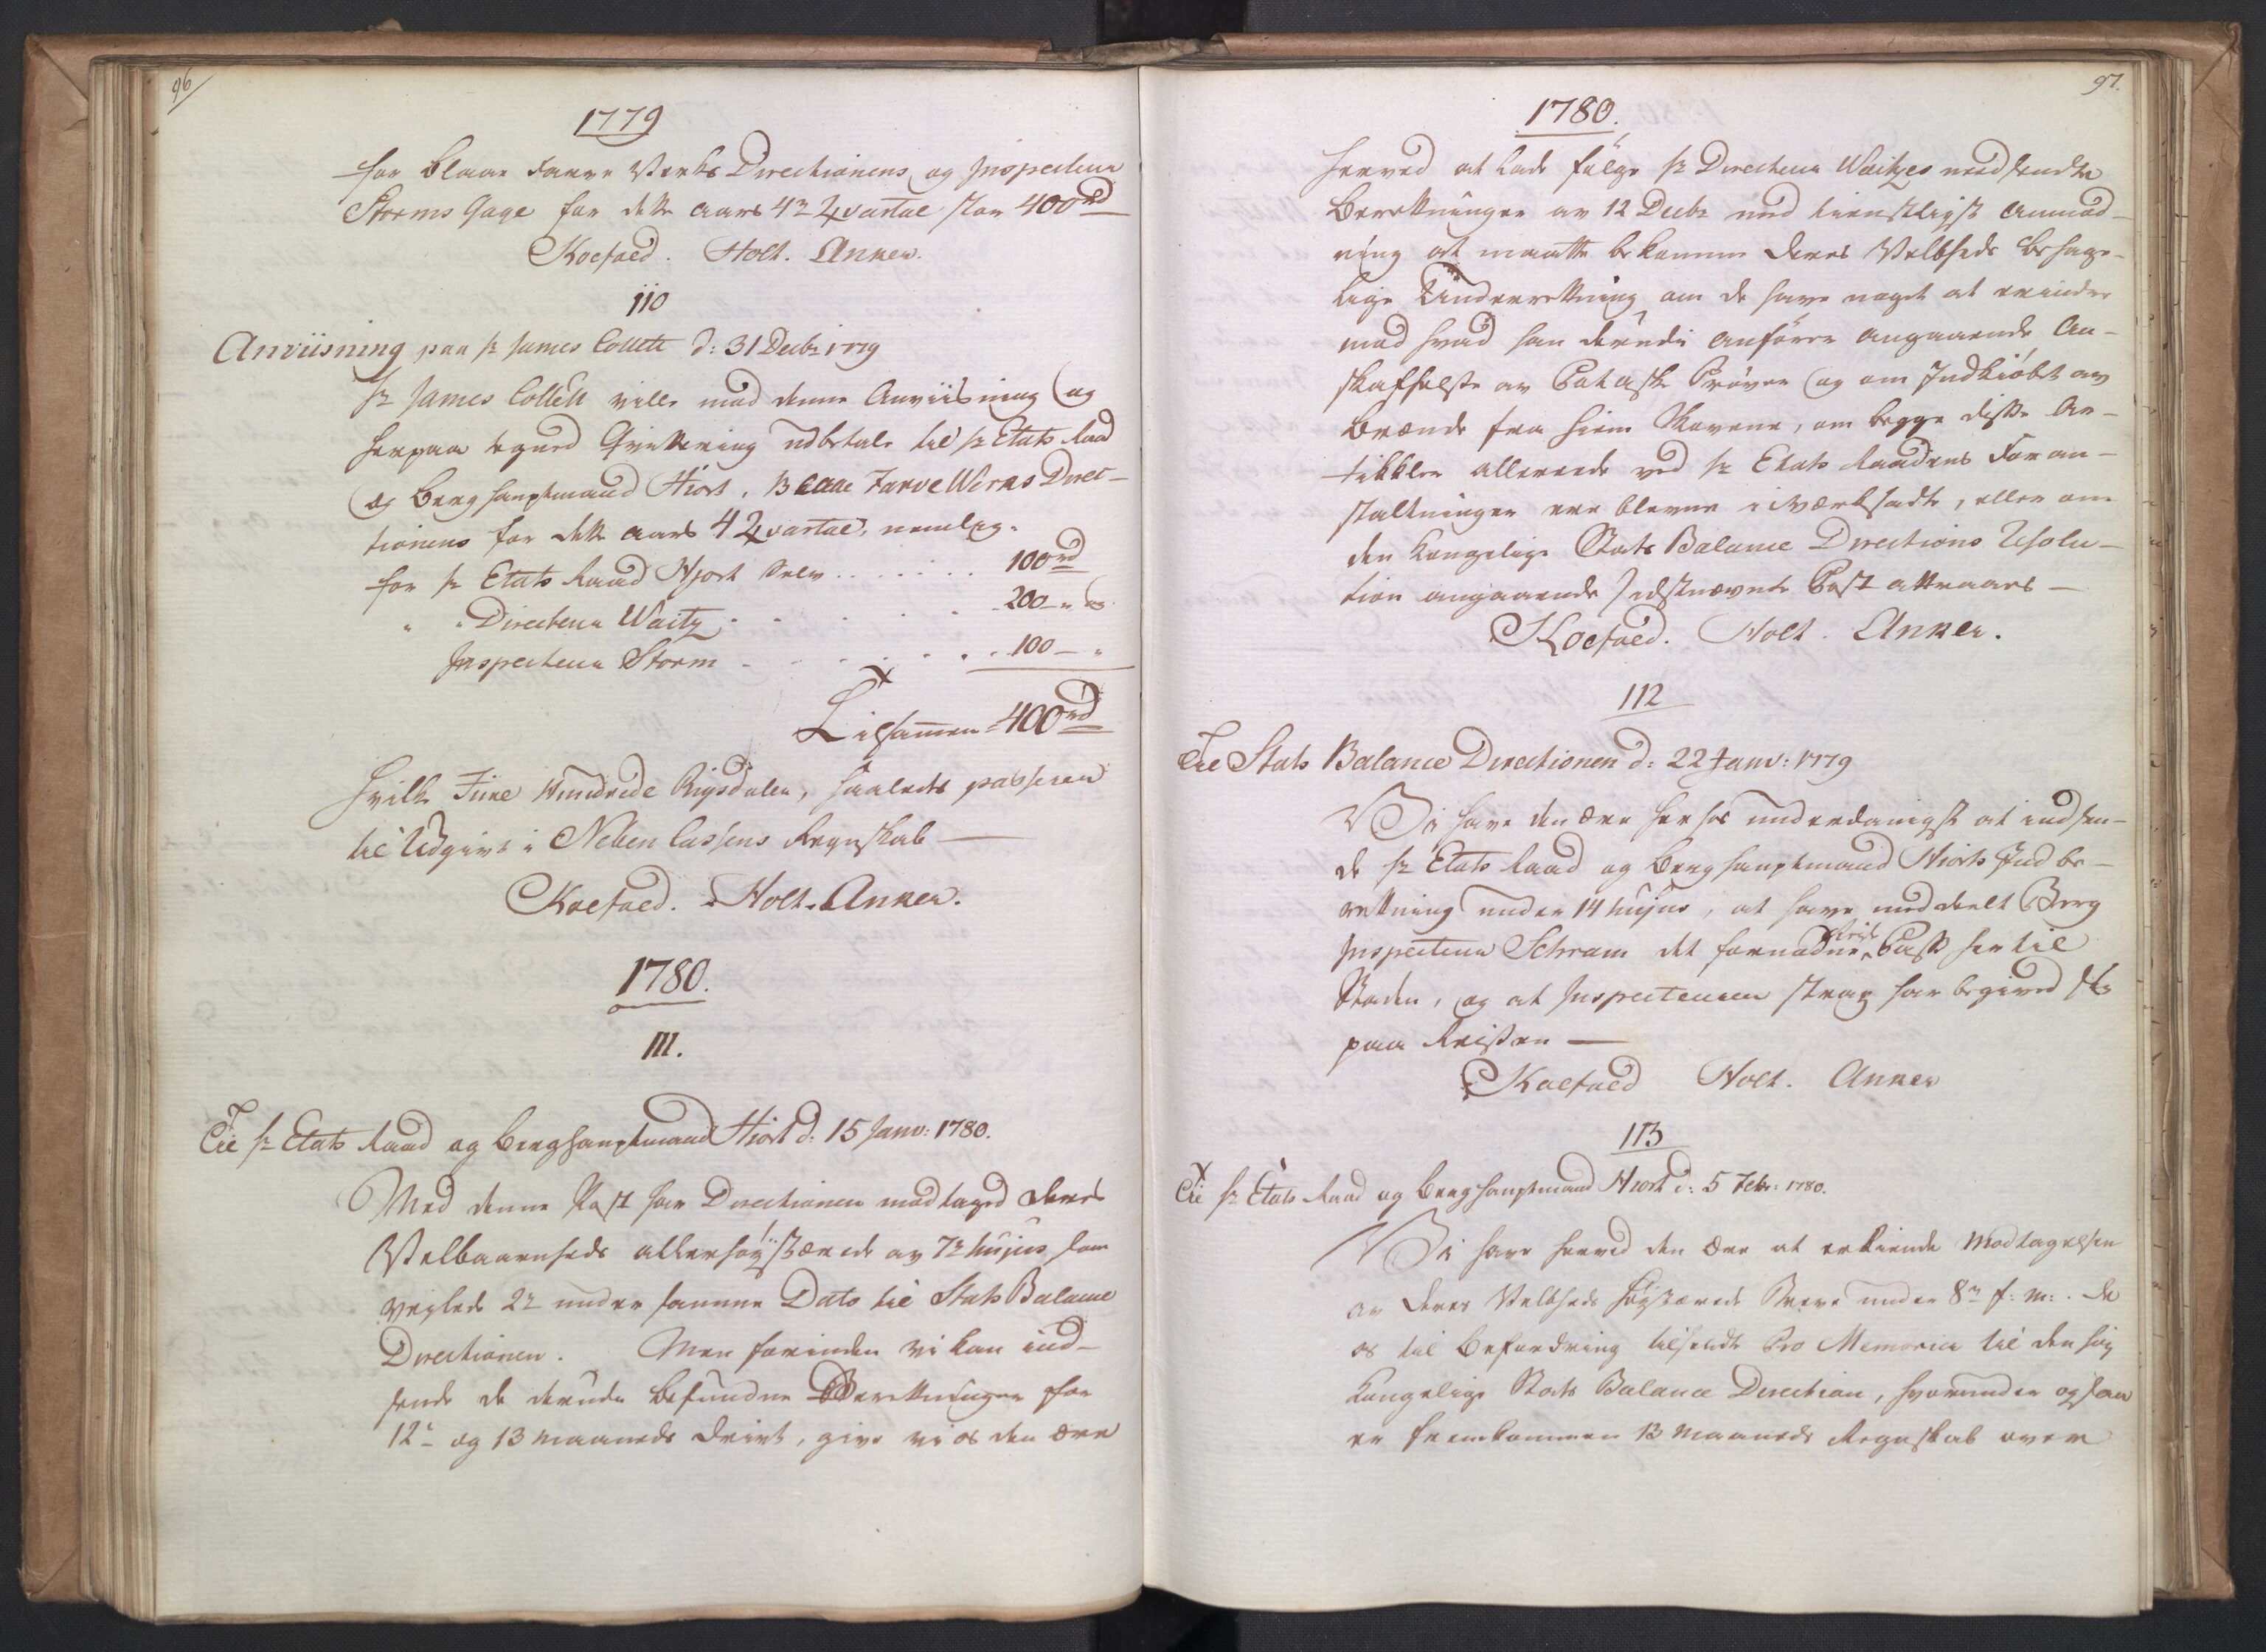 96/
1779
for Blaae Farve Verks Directionens og Inspecteur
Storms Gage for dette Aars 4de Qvartal stor 400rd
Koefoed. Holt. Anker.
110
Anviisning paa Hr James Collett d: 31 Decbr 1779
Hr James Collett ville mod denne Anviisning og
herpaa tegned Qvittering udbetale til Hr Etats Raad
og Berghauptmand Hiort, Blaae Farve Werks Direc-
tionens for dette Aars 4 Qvartal, nemlig:
for Hr Etats Raad Hjort Selv . . . . . . 100rd
" " Directeur Waitz . . . . 200 - "
Inspecteur Storm - . . . . . 100 - "
Tilsammen 400rd
hvilke Fiire Hundrede Rigsdaler, saaledes passerer
til Udgivt i Neben Cassens Regnskab —
Koefoed. Holt. Anker.
1780.
111.
Til Hr Etats Raad og Berghauptmand Hiort d: 15 Janv: 1780.
Med denne Post har Directionen modtaget Deres
Velbaarenheds allerhøystærede av 7de hujus, som
vedlagde 2de under samme Dato til Stats Balance
Directionen. Men forinden vi kan ind-
sende de derudi befundne Beretninger for
12te og 13 Maaneds Drivt, give vi os den Ære
97.
1780.
herved at lade følge Hr Directeur Waitzes medsendte
Beretninger av 12 Decbr med tienstligst Anmod-
ning at maatte bekomme Deres Velbheds behage-
lige Underretning, om De have noget at erindre
mod hvad han derudi anfører angaaende An-
skaffelse av Potaske Prøver og om Indkiøbet av
Brænde fra Hiem Skovene, om begge disse Ar-
tikkler allereede ved Hr Etats Raadens Foran-
staltninger ere blevne iværksadte, eller om
den Kongelige Stats Balance Directions Resolu-
tion angaaende sidstnævnte Post attraaes —
Koefoed. Holt. Anker.
112
Til Stats Balance Directionen d: 22 Janv: 1779
Vi have den Ære herhos underdanigst at indsen-
de Hr Etats Raad og Berghauptmand Hiorts Indbe-
retning under 14 hujus, at have meddeelt Berg
Inspecteur Schram det fornødne Reise Pass her til
Staden, og at Inspecteuren strax har begived sig
paa Reissen —
Koefoed Holt. Anker
113
Til Hr Etats Raad og Berghauptmand Hiort d: 5 Febr: 1780.
Vi have herved den Ære at erkiende Modtagelsen
av Deres Velbheds høystærede Breve under 8de f: M:. De
os til Befordring tilsendte Pro Memoria til den høy
Kongelige Stats Balance Direction, hvorunder ogsaa
er fremkommen 13 Maaneds Regnskab over